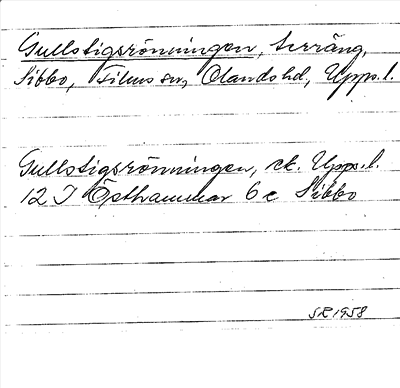 Gullstigsrönningen, terräng,
Sibbo, Films sn, Olands hd, Upps. l.
Gullstigsrönningen, ek. Upps. l.
12 I Östhammar 6 c Sibbo
SR 1958